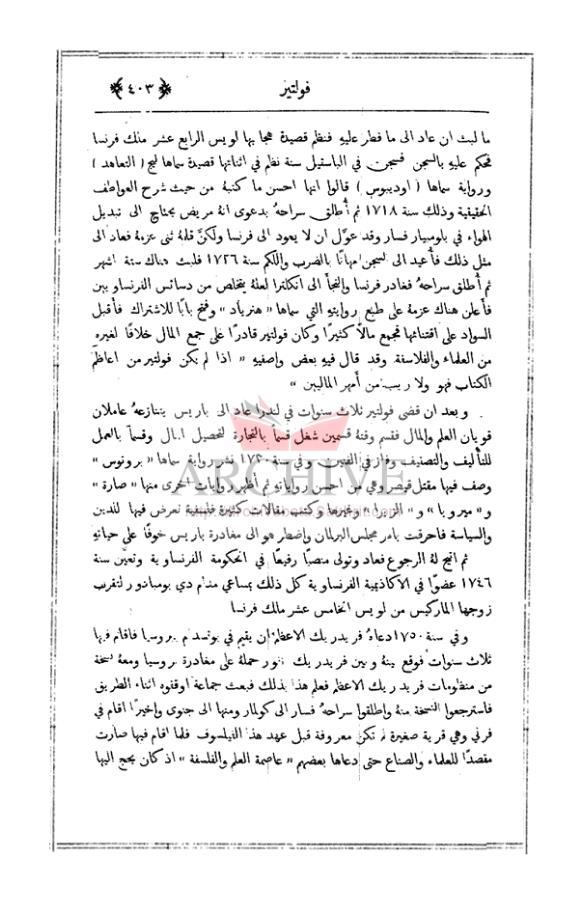 فولتير
﴿٤٠٣﴾
ما لبث ان عاد الى ما فطر عليهِ فنظم قصيدة هجا بها لويس الرابع عشر ملك فرنسا
فحكم عليهِ بالسجن فسجن في الباستيل سنة نظم في اثنائها قصيدة سماها ليج ( التعاهد )
ورواية سماها ( اوديبوس ) قالوا انها احسن ما كتبهُ من حيث شرح العواطف
الحقيقية وذلك سنة ١٧١٨ ثم أُطلق سراحهُ بدعوى انهُ مريض يحتاج الى تبديل
الهواء في بلومبيار فسار وقد عوَّل ان لا يعود الى فرنسا ولكنَّ قلبهُ ثنى عزمهُ فعاد الى
مثل ذلك فأُعيد الى السجن مهانًا بالضرب واللكم سنة ١٧٢٦ فلبث هناك ستة اشهر
ثم أُطلق سراحهُ فغادر فرنسا والتجأ الى انكلترا لعلهُ يتخلص من دسائس الفرنساويين
فأعلن هناك عزمهُ على طبع روايتهِ التي سماها « هنرياد » وفتح بابًا للاشتراك فأقبل
السواد على اقتنائها فجمع مالاً كثيرًا وكان فولتير قادرًا على جمع المال خلافًا لغيره
من العلماء والفلاسفة وقد قال فيهِ بعض واصفيهِ « اذا لم يكن فولتير من اعاظم
الكتاب فهو ولا ريب من أمهر الماليين »
وبعد ان قضى فولتير ثلاث سنوات في لندرا عاد الى باريس يتنازعهُ عاملان
قويان العلم والمال فقسم وقتهُ قسمين شغل قسماً بالتجارة لتحصيل المال وقسماً بالعمل
للتأليف والتصنيف وفاز في القسمين وفي سنة ١٧٣٠ نشر رواية سماها « بروتوس »
وصف فيها مقتل قيصر وهي من احسن رواياتهِ ثم أظهر روايات أخرى منها « صارة »
و« ميروبا » و« الزيرا » وغيرها وكتب مقالات كثيرة فلسفية تعرض فيها للدين
والسياسة فأحرقت بامر مجلس البرلمان واضطر هو الى مغادرة باريس خوفًا على حياتهِ
ثم اتيح لهُ الرجوع فعاد وتولى منصبًا رفيعًا في الحكومة الفرنساوية وتعيَّن سنة
١٧٤٦ عضوًا في الاكاذيمية الفرنساوية كل ذلك بمساعي مدام دي بومبادور لتقرب
زوجها الماركيس من لويس الخامس عشر ملك فرنسا
وفي سنة ١٧٥٠ دعاهُ فريدريك الاعظم ان يقيم في بوتسدام ببروسيا فاقام فيها
ثلاث سنوات فوقع بينهُ وبين فريدريك نفور حملهُ على مغادرة بروسيا ومعهُ نسخة
من منظومات فريدريك الاعظم فعلم هذا بذلك فبعث جماعة اوقفوه اثناء الطريق
فاسترجعوا النسخة منهُ واطلقوا سراحهُ فسار الى كولمار ومنها الى جنوى واخيرًا اقام في
فرني وهي قرية صغيرة لم تكن معروفة قبل عهد هذا الفيلسوف فلما اقام فيها صارت
مقصدًا للعلماء والصناع حتى دعاها بعضهم « عاصمة العلم والفلسفة » اذ كان يحج اليها
ARCHIVE